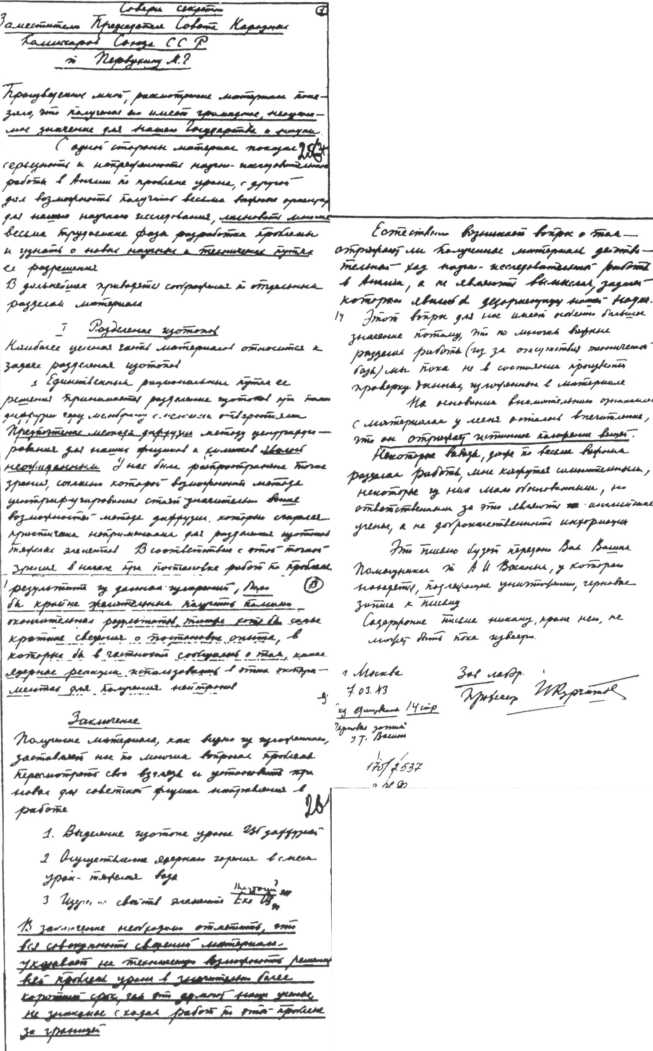 Совершенно секретно
Заместителю Председателя Совета Народных
Комиссаров Союза ССР
т. Первухину М.Г.
Произведенное мной рассмотрение материала пока-
зало, что получение его имеет громадное, неоцени-
мое значение для нашего Государства и науки.
С одной стороны материал показал
серьезность и напряженность научно-исследовательской
работы в Англии по проблеме урана, с другой
дал возможность получить весьма важные ориентиры
для нашего научного исследования, миновать многие
весьма трудоемкие фазы разработки проблемы
и узнать о новых научных и технических путях
ее разрешения
В дальнейшем приводятся соображения по отдельным
разделам материала
I Разделение изотопов
Наиболее ценная часть материалов относится к
задаче разделения изотопов
1 Единственным рациональным путем ее
решения принимается разделение изотопов при помощи
диффузии через мембрану с мелкими отверстиями
Предпочтение метода диффузии методу центрифугиро-
вания для наших физиков и химиков явилось
неожиданным У нас была распространена точка
зрения, согласно которой возможности метода
центрифугирования стоят значительно выше
возможностей метода диффузии, который считался
практически неприменимым для разделения изотопов
тяжелых элементов В соответствии с этой точкой
зрения в начале при постановке работ по проблеме
было
бы крайне желательным получить помимо
окончательных результатов
краткие сведения о постановке опыта, в
которых бы в частности сообщалось о том, какие
ядерные реакции использовались в этих экспери-
ментах для получения нейтронов
Заключение
Получение материала, как видно из изложенного,
заставляет нас по многим вопросам проблемы
пересмотреть свои взгляды и установить три
новых для советской физики направления в
работе
1. Выделение изотопа урана 235 диффузией
2 Осуществление ядерного горения в смеси
уран-тяжелая вода
3 Изучение свойств элемента Eka Os
В заключение необходимо отметить, что
вся совокупность сведений материала
указывает на техническую возможность решения
всей проблемы урана в значительно более
короткий срок, чем это думают наши ученые,
не знакомые с ходом работ по этой проблеме
за границей
Естественно возникает вопрос о том
отражают ли полученные материалы действи-
тельный ход научно-исследовательской работы
в Англии, а не являются вымыслом, задачей
которого явилась бы дезориентация нашей науки.
Этот вопрос для нас имеет особенно большое
значение потому, что по многим важным
разделам работы (из за отсутствия технической
базы) мы пока не в состоянии произвести
проверку данных, изложенных в материале
На основании внимательного ознакомления
с материалом у меня осталось впечатление,
что он отражает истинное положение вещей.
Некоторые выводы, даже по весьма важным
разделам работы, мне кажутся сомнительными,
некоторые из них мало обоснованными, но
ответственными за это являются английские
ученые, а не доброкачественность информации
Это письмо будет передано Вам Вашим
Помощником т. А.И. Васиным, у которого
находятся, подлежащие уничтожению, черновые
записи к письму
Содержание письма никому, кроме него, не
может быть пока известно
г Москва
7 03.43
Зав лабор.
Профессор И Курчатов
14 стр
Черновые записи
у т. Васина